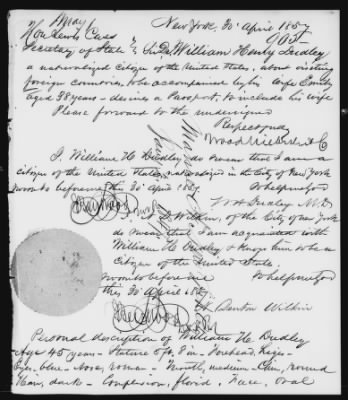 1 May
New York, 30 April 1857
Hon Lewis Cass
905
Secretary of State
Sir, Dr William Henry Dudley
a naturalized citizen of the United States, about visiting
foreign countries, to be accompanied by his wife Emily
aged 38 years - desires a Passport, to include his wife
Please forward to the undersigned
Respectfully
I, William H. Dudley do swear that I am a
citizen of the United States, naturalized in the City of New York
Sworn to before me this 30 April 1857.
So help me God
W H Dudley M.D
I, D. Wilkin, of the City of New York
do swear that I am acquainted with
William H Dudley & know him to be a
citizen of the United States.
Sworn to before me
So help me God
this 30 April 1857.
Wilkin
Personal description of William H. Dudley
Age 45 years - Stature 5 ft, 8 in - Forehead, high -
Eyes, blue - Nose, roman - Mouth, medium - Chin, round
Hair, dark - Complexion, florid. Face, oval